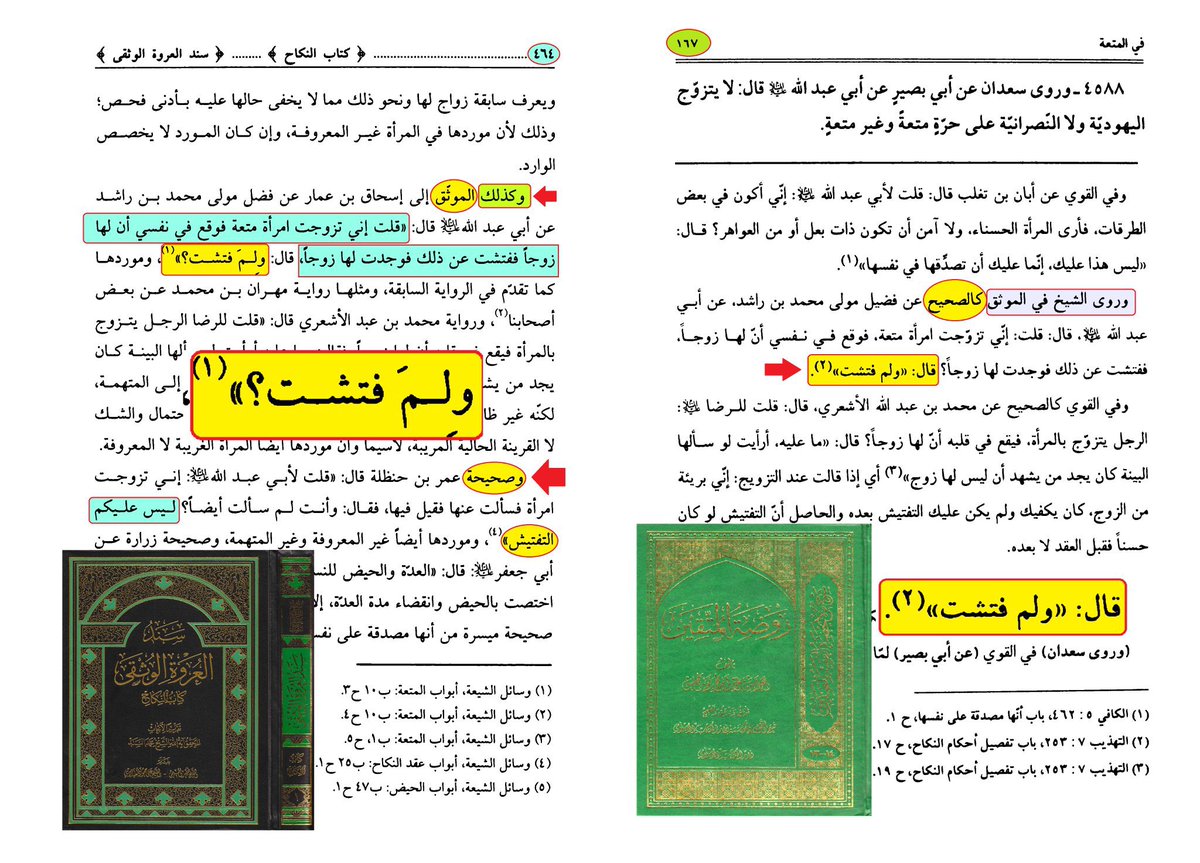 في المتعة
١٦٧
٤٥٨٨ ـ وروى سعدان عن أبي بصيرٍ عن أبي عبد الله عليه السلام قال: لا يتزوّج
اليهوديّة ولا النّصرانيّة على حرّةٍ متعةً وغير متعةٍ.
وفي القوي عن أبان بن تغلب قال: قلت لأبي عبد الله عليه السلام: إنّي أكون في بعض
الطرقات، فأرى المرأة الحسناء، ولا آمن أن تكون ذات بعل أو من العواهر؟ قال:
«ليس هذا عليك، إنّما عليك أن تصدّقها في نفسها»(١).
وروى الشيخ في الموثق كالصحيح عن فضيل مولى محمد بن راشد، عن أبي
عبد الله عليه السلام، قال: قلت: إنّي تزوّجت امرأة متعة، فوقع في نفسي أنّ لها زوجاً،
ففتشت عن ذلك فوجدت لها زوجاً؟ قال: «ولم فتشت»(٢).
وفي القوي كالصحيح عن محمد بن عبد الله الأشعري، قال: قلت للرضا عليه السلام:
الرجل يتزوّج بالمرأة، فيقع في قلبه أنّ لها زوجاً؟ قال: «ما عليه، أرأيت لو سألها
البينة كان يجد من يشهد أن ليس لها زوج»(٣) أي إذا قالت عند التزويج: إنّي بريئة
من الزوج، كان يكفيك ولم يكن عليك التفتيش بعده والحاصل أنّ التفتيش لو كان
حسناً فقبل العقد لا بعده.
قال: «ولم فتشت»(٢).
(وروى سعدان) في القوي (عن أبي بصير) لمّا
(١) الكافي ٥ : ٤٦٢، باب أنّها مصدقة على نفسها، ح ١.
(٢) التهذيب ٧ : ٢٥٣، باب تفصيل أحكام النكاح، ح ١٧.
(٣) التهذيب ٧ : ٢٥٣، باب تفصيل أحكام النكاح، ح ١٩.
روضة المتقين
٤٦٤ ........ ﴿ كتاب النكاح ﴾ ......... ﴿ سند العروة الوثقى ﴾
ويعرف سابقة زواج لها ونحو ذلك مما لا يخفى حالها عليه بأدنى فحص؛
وذلك لأن موردها في المرأة غير المعروفة، وإن كان المورد لا يخصص
الوارد.
وكذلك الموثّق إلى إسحاق بن عمار عن فضل مولى محمد بن راشد
عن أبي عبد الله عليه السلام قال: «قلت إني تزوجت امرأة متعة فوقع في نفسي أن لها
زوجاً ففتشت عن ذلك فوجدت لها زوجاً، قال: ولِمَ فتشت؟»(١)، وموردها
كما تقدّم في الرواية السابقة، ومثلها رواية مهران بن محمد عن بعض
أصحابنا(٢)، ورواية محمد بن عبد الأشعري قال: «قلت للرضا الرجل يتزوج
بالمرأة فيقع
ألها البينة كان
يجد من
إلى المتهمة،
لكنّه غير
حتمال والشك
ولِمَ فتشت؟»(١)
لا القرينة الحالية المريبة، لاسيما وأن موردها أيضاً المرأة الغريبة لا المعروفة.
وصحيحة عمر بن حنظلة قال: «قلت لأبي عبد الله عليه السلام: إني تزوجت
امرأة فسألت عنها فقيل فيها، فقال: وأنت لم سألت أيضاً؟ ليس عليكم
التفتيش»(٤)، وموردها أيضاً غير المعروفة وغير المتهمة، وصحيحة زرارة عن
أبي جعفر عليه السلام: قال: «العدّة والحيض للنس
اختصت بالحيض وانقضاء مدة العدّة، إلا
صحيحة ميسرة من أنها مصدقة على نفس
(١) وسائل الشيعة، أبواب المتعة: ب١٠ ح٣.
(٢) وسائل الشيعة، أبواب المتعة: ب١٠ ح٤.
(٣) وسائل الشيعة، أبواب المتعة: ب١، ح٥.
(٤) وسائل الشيعة، أبواب عقد النكاح: ب٢٥ ح١.
(٥) وسائل الشيعة، أبواب الحيض: ب٤٧ ح١.
سند
العروة الوثقى
كتاب النكاح